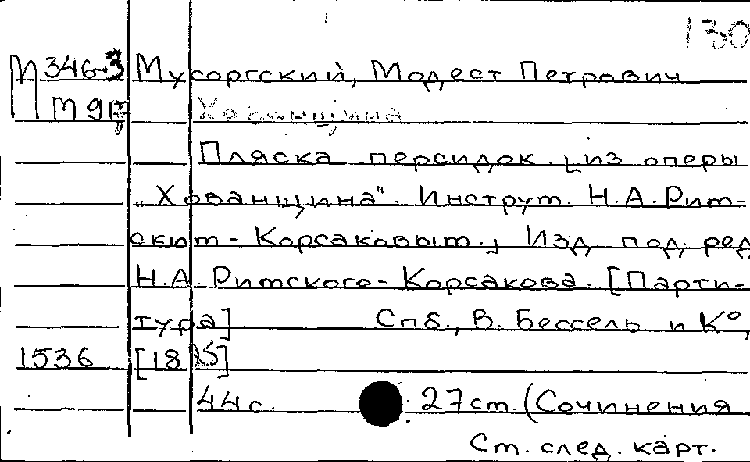 130
П 346-3 Мусоргский, Модест Петрович
М 91 Хованщина
Пляска персидок. [из оперы
„Хованщина". Инструм. Н.А. Рим-
ским-Корсаковым., Изд. под ред.
Н.А. Римского-Корсакова. [Парти-
тура] Спб., В. Бессель и К°,
1536 [18
44 с. 27 см. (Сочинения
См. след. карт.